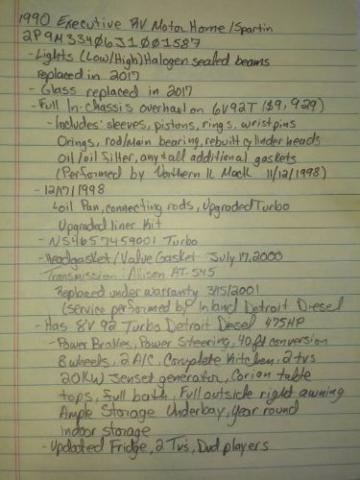 1990 Executive RV Motor Home/Spartin
2P9M33406J1001587
- Lights (Low/High) Halogen sealed beams
replaced in 2017
- Glass replaced in 2017
- Full In-chassis overhaul on 6V92T ($9,929)
- Includes: sleeves, pistons, rings, wristpins
Orings, rod/main bearing, rebuilt cylinder heads
Oil/oil filter, any + all additional gaskets
(Performed by Northern IL Mack 11/12/1998)
- 12/17/1998
1 oil Pan, connecting rods, Upgraded Turbo
Upgraded liner kit
- NS4657459001 Turbo
- Headgasket/Valve Gasket July 17, 2000
Transmission: Allison AT-545
Replaced under warranty 3/15/2001
(Service performed by Inland Detroit Diesel
- Has 8V 92 Turbo Detroit Diesel 475HP
- Power Brakes, Power Steering, 40ft conversion
8 wheels, 2 A/C, Complete Kitchen: 2 tvs
20KW Jenset generator, Corian table
tops, Full bath, Full outside right awning
Ample Storage Underbay, Year round
Indoor storage
- Updated Fridge, 2 Tvs, Dvd players